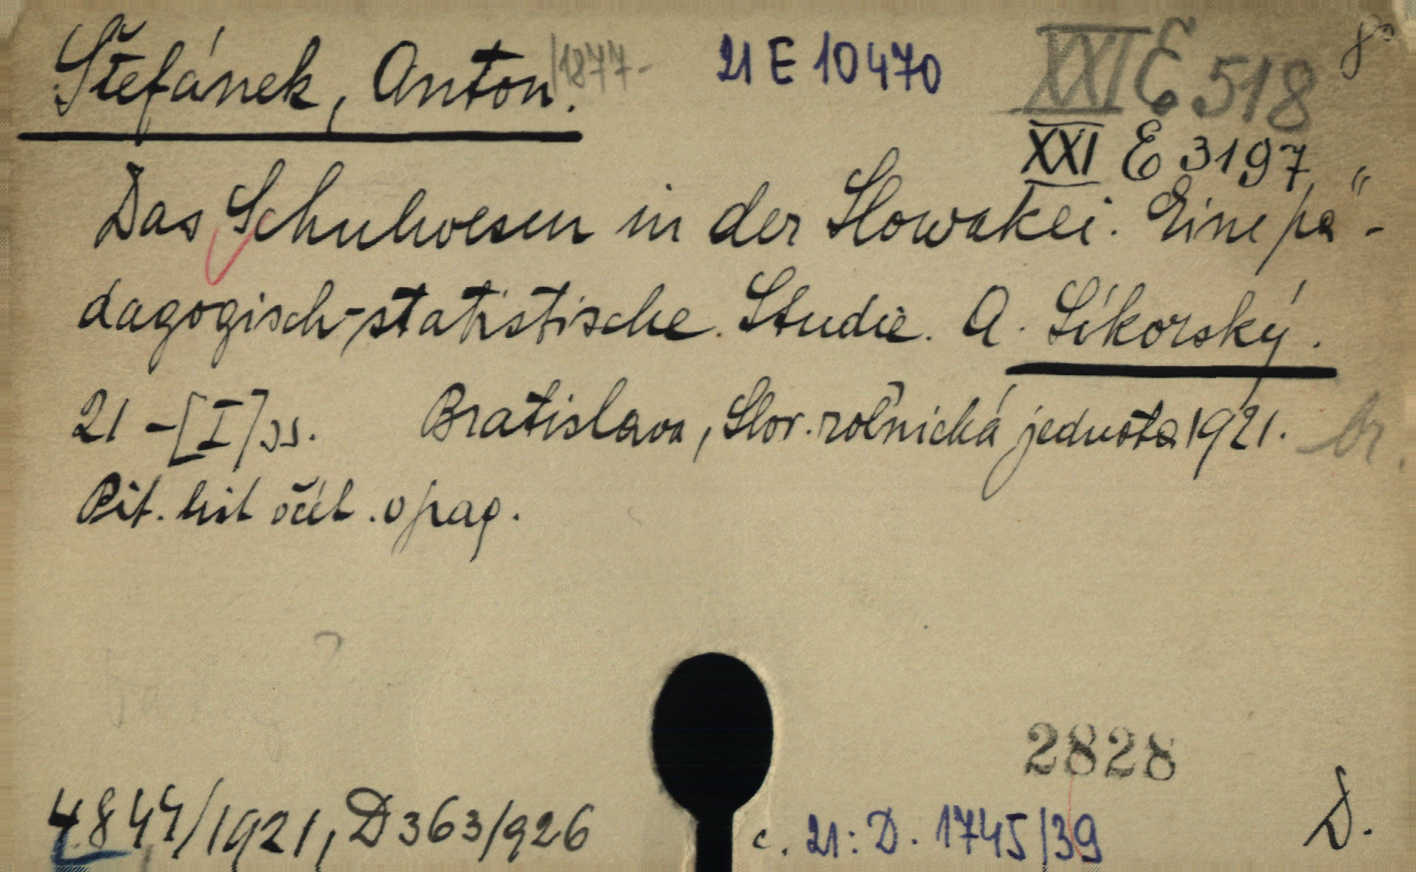 Štefánek, Anton. 1877- 21 E 10470 XXI E 518 8°
XXI E 3197
Das Schulwesen in der Slowakei. Eine pä-
dagogisch-statistische Studie. A. Síkorský.
21-[I] ss. Bratislava, Slov. roľnická jednota 1921. br.
Tit. list . o pag.
2828
4.844/1921, D 363/926 c. 21: D. 1745/39 D.